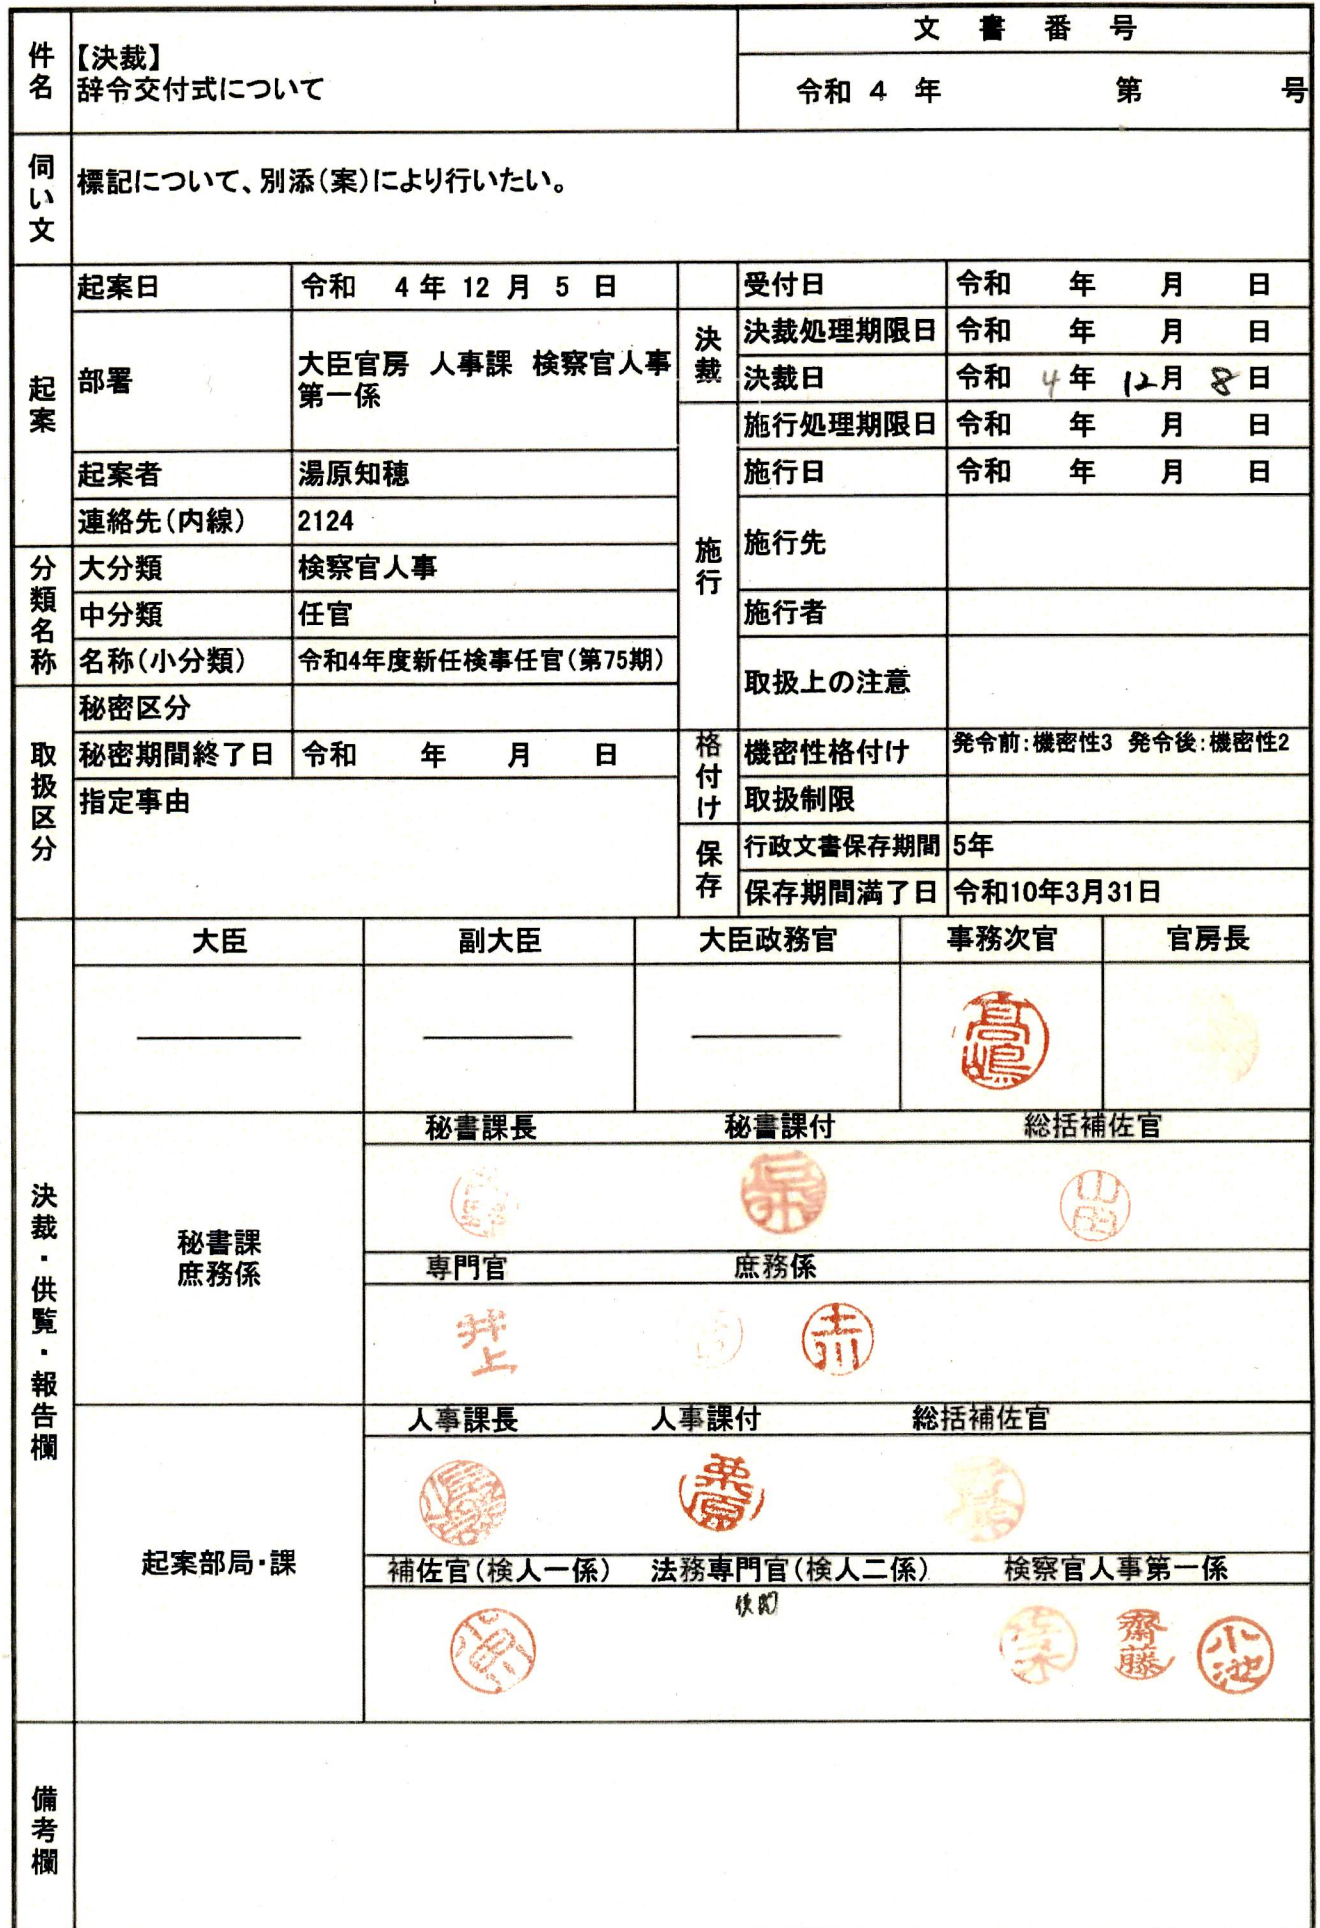 件名
【決裁】
辞令交付式について
文書番号
令和 4 年 第 号
伺い文
標記について、別添(案)により行いたい。
起案
起案日 令和 4 年 12 月 5 日
部署 大臣官房 人事課 検察官人事
第一係
起案者 湯原知穂
連絡先(内線) 2124
分類名称
大分類 検察官人事
中分類 任官
名称(小分類) 令和4年度新任検事任官(第75期)
取扱区分
秘密区分
秘密期間終了日 令和 年 月 日
指定事由
決裁
受付日 令和 年 月 日
決裁処理期限日 令和 年 月 日
決裁日 令和 4 年 12 月 8 日
施行
施行処理期限日 令和 年 月 日
施行日 令和 年 月 日
施行先
施行者
取扱上の注意
格付け
機密性格付け 発令前:機密性3 発令後:機密性2
取扱制限
保存
行政文書保存期間 5年
保存期間満了日 令和10年3月31日
決裁・供覧・報告欄
大臣 副大臣 大臣政務官 事務次官 官房長
高嶋
秘書課
庶務係
秘書課長 秘書課付 総括補佐官
専門官 庶務係
井上 市川
起案部局・課
人事課長 人事課付 総括補佐官
栗原
補佐官(検人一係) 法務専門官(検人二係) 検察官人事第一係
後閲
齋藤 小池
備考欄